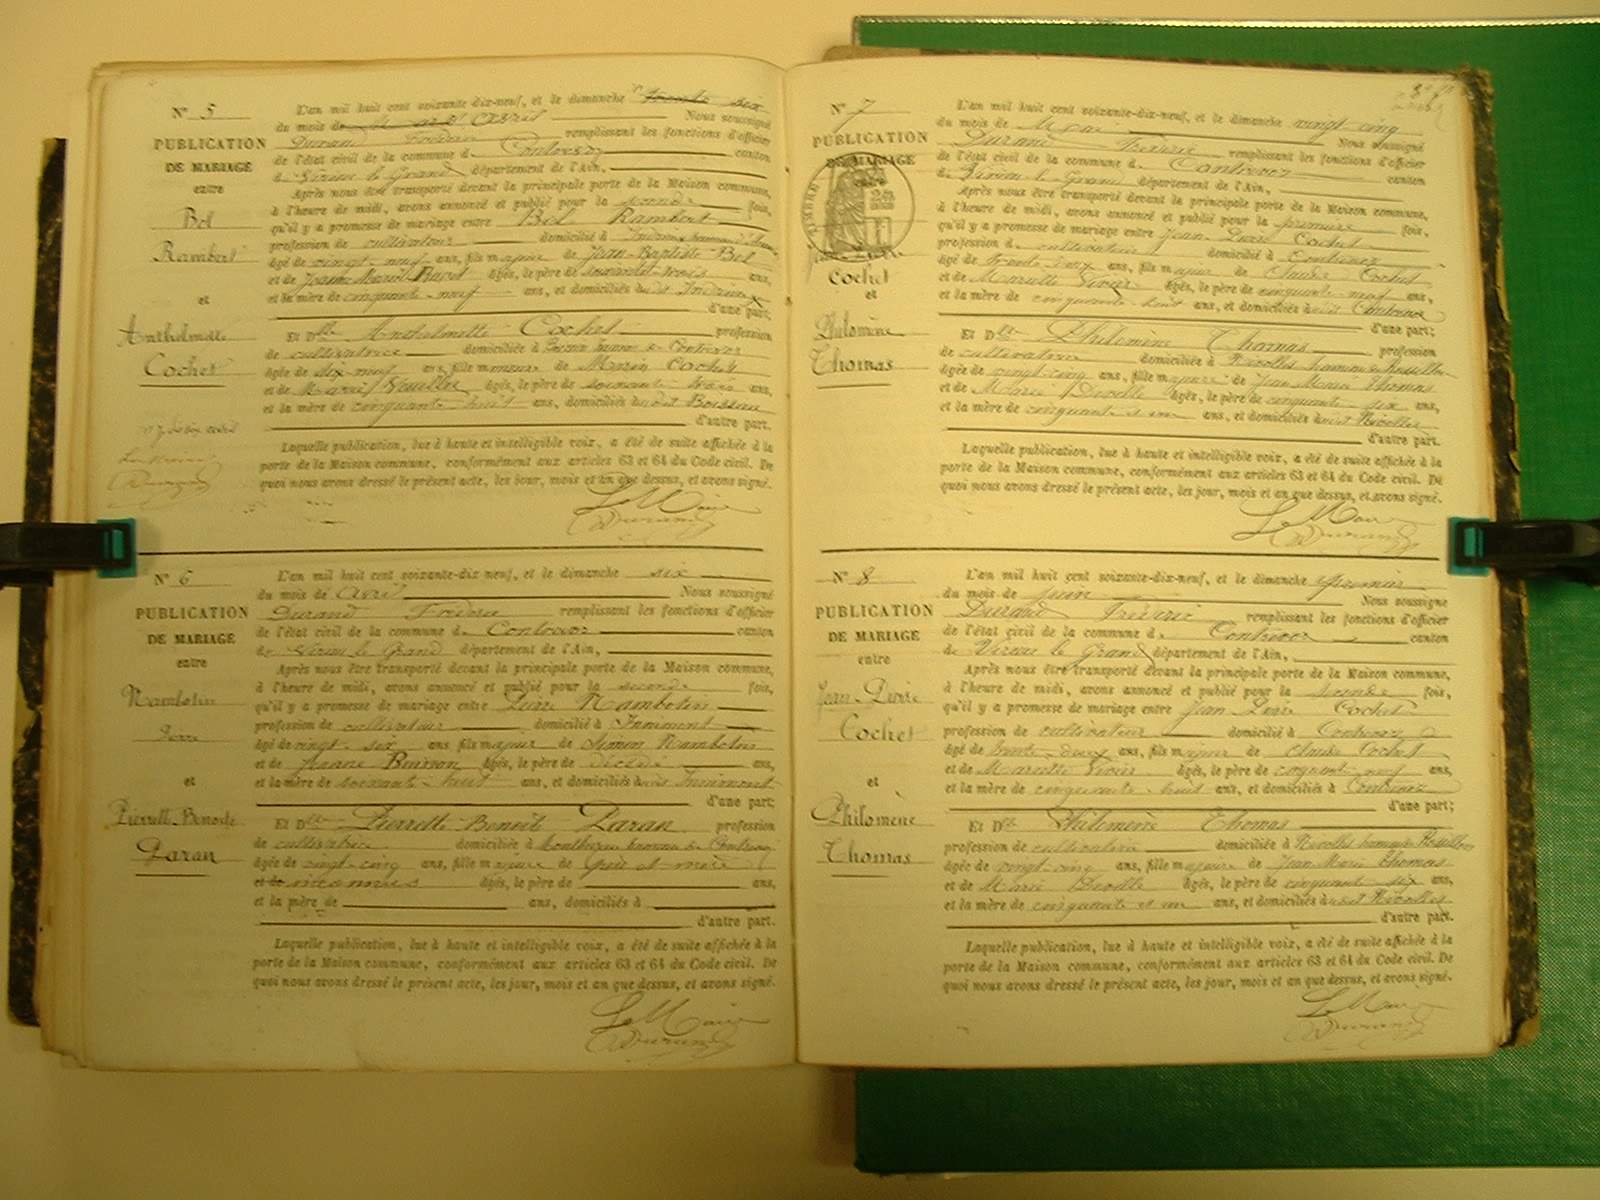 N° 5
PUBLICATION
DE MARIAGE
entre
Bel
Rambert
et
Anthelmette
Cochet
L'an mil huit cent soixante-dix-neuf, et le dimanche six
du mois de Avril Nous soussigné
Durand Frédéric remplissant les fonctions d'officier
de l'état civil de la commune de Contrevoz canton
de Virieu le Grand département de l'Ain,
Après nous être transporté devant la principale porte de la Maison commune,
à l'heure de midi, avons annoncé et publié pour la seconde fois,
qu'il y a promesse de mariage entre Bel Rambert
profession de cultivateur domicilié à
âgé de vingt-neuf ans, fils majeur de Jean-Baptiste Bel
et de Jeanne Marie âgés, le père de soixante-trois ans,
et la mère de cinquante-neuf ans, et domiciliés
d'une part;
Et Dlle Anthelmette Cochet profession
de cultivatrice domiciliée à Contrevoz
âgée de dix-neuf ans, fille mineure de Marin Cochet
et de Marie âgés, le père de soixante trois ans,
et la mère de cinquante huit ans, domiciliés audit Boissieu
d'autre part.
Laquelle publication, lue à haute et intelligible voix, a été de suite affichée à la
porte de la Maison commune, conformément aux articles 63 et 64 du Code civil. De
quoi nous avons dressé le présent acte, les jour, mois et an que dessus, et avons signé.
Le Maire
Durand
N° 6
PUBLICATION
DE MARIAGE
entre
Nambotin
Pierre
et
Pierrette Benoite
Paran
L'an mil huit cent soixante-dix neuf, et le dimanche six
du mois de Avril Nous soussigné
Durand Frédéric remplissant les fonctions d'officier
de l'état civil de la commune de Contrevoz canton
de Virieu le Grand département de l'Ain,
Après nous être transporté devant la principale porte de la Maison commune,
à l'heure de midi, avons annoncé et publié pour la seconde fois,
qu'il y a promesse de mariage entre Pierre Nambotin
profession de cultivateur domicilié à Innimont
âgé de vingt-six ans fils majeur de Simon Nambotin
et de Jeanne Buisson âgés, le père de décédé ans,
et la mère de soixante-huit ans, et domiciliés audit Innimont
d'une part;
Et Dlle Pierrette Benoit Paran profession
de cultivatrice domiciliée à hameau de Contrevoz
âgée de vingt-cinq ans, fille majeure de père et mère
et de inconnus âgés, le père de ans,
et la mère de ans, domiciliés à
d'autre part.
Laquelle publication, lue à haute et intelligible voix, a été de suite affichée à la
porte de la Maison commune, conformément aux articles 63 et 64 du Code civil. De
quoi nous avons dressé le présent acte, les jour, mois et an que dessus, et avons signé.
Le Maire
Durand
N° 7
PUBLICATION
DE MARIAGE
entre
Cochet
et
Philomène
Thomas
L'an mil huit cent soixante-dix-neuf, et le dimanche vingt cinq
du mois de Mai Nous soussigné
Durand Frédéric remplissant les fonctions d'officier
de l'état civil de la commune de Contrevoz canton
de Virieu le Grand département de l'Ain,
Après nous être transporté devant la principale porte de la Maison commune,
à l'heure de midi, avons annoncé et publié pour la première fois,
qu'il y a promesse de mariage entre Jean-Pierre Cochet
profession de cultivateur domicilié à Contrevoz
âgé de trente-deux ans, fils majeur de Claude Cochet
et de Mariette Vivier âgés, le père de cinquante-neuf ans,
et la mère de cinquante-huit ans, et domiciliés audit Contrevoz
d'une part;
Et Dlle Philomène Thomas profession
de cultivatrice domiciliée à Nivolles hameau de
âgée de vingt cinq ans, fille majeure de Jean Marie Thomas
et de Marie âgés, le père de cinquante-six ans,
et la mère de cinquante et un ans, et domiciliés audit Nivolles
d'autre part.
Laquelle publication, lue à haute et intelligible voix, a été de suite affichée à la
porte de la Maison commune, conformément aux articles 63 et 64 du Code civil. De
quoi nous avons dressé le présent acte, les jour, mois et an que dessus, et avons signé.
Le Maire
Durand
N° 8
PUBLICATION
DE MARIAGE
entre
Jean Pierre
Cochet
et
Philomène
Thomas
L'an mil huit cent soixante-dix-neuf, et le dimanche premier
du mois de Juin Nous soussigné
Durand Frédéric remplissant les fonctions d'officier
de l'état civil de la commune de Contrevoz canton
de Virieu le Grand département de l'Ain,
Après nous être transporté devant la principale porte de la Maison commune,
à l'heure de midi, avons annoncé et publié pour la seconde fois,
qu'il y a promesse de mariage entre Jean-Pierre Cochet
profession de cultivateur domicilié à Contrevoz
âgé de trente-deux ans, fils majeur de Claude Cochet
et de Mariette Vivier âgés, le père de cinquante-neuf ans,
et la mère de cinquante-huit ans, et domiciliés à Contrevoz
d'une part;
Et Dlle Philomène Thomas
profession de cultivatrice domiciliée à Nivolles hameau de
âgée de vingt-cinq ans, fille majeure de Jean Marie Thomas
et de Marie âgés, le père de cinquante six ans,
et la mère de cinquante et un ans, et domiciliés audit Nivolles
d'autre part.
Laquelle publication, lue à haute et intelligible voix, a été de suite affichée à la
porte de la Maison commune, conformément aux articles 63 et 64 du Code civil. De
quoi nous avons dressé le présent acte, les jour, mois et an que dessus, et avons signé.
Le Maire
Durand